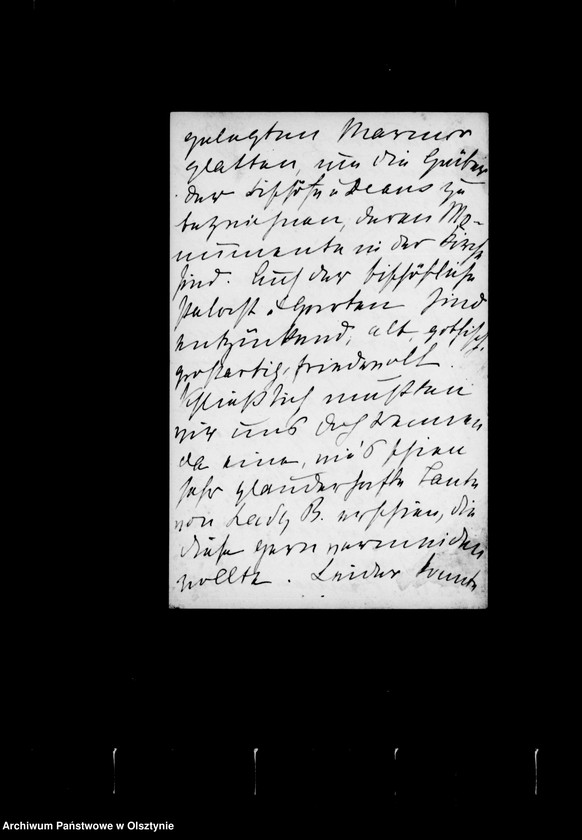 gelegten Marmor
platten, um die Gräber
der Bischöfe u Deans zu
bezeichnen, deren Mo-
numente in der Kirche
sind. Auch der bischöfliche
Palast u Garten sind
entzückend, alt, gothisch,
großartig, friedevoll.
Schließlich mußten
wir uns doch trennen
da eine, wie's schien
sehr plauderhafte Tante
von Lady B. erschien, die
diese gern vermeiden
wollte. Leider konnte
Archiwum Państwowe w Olsztynie